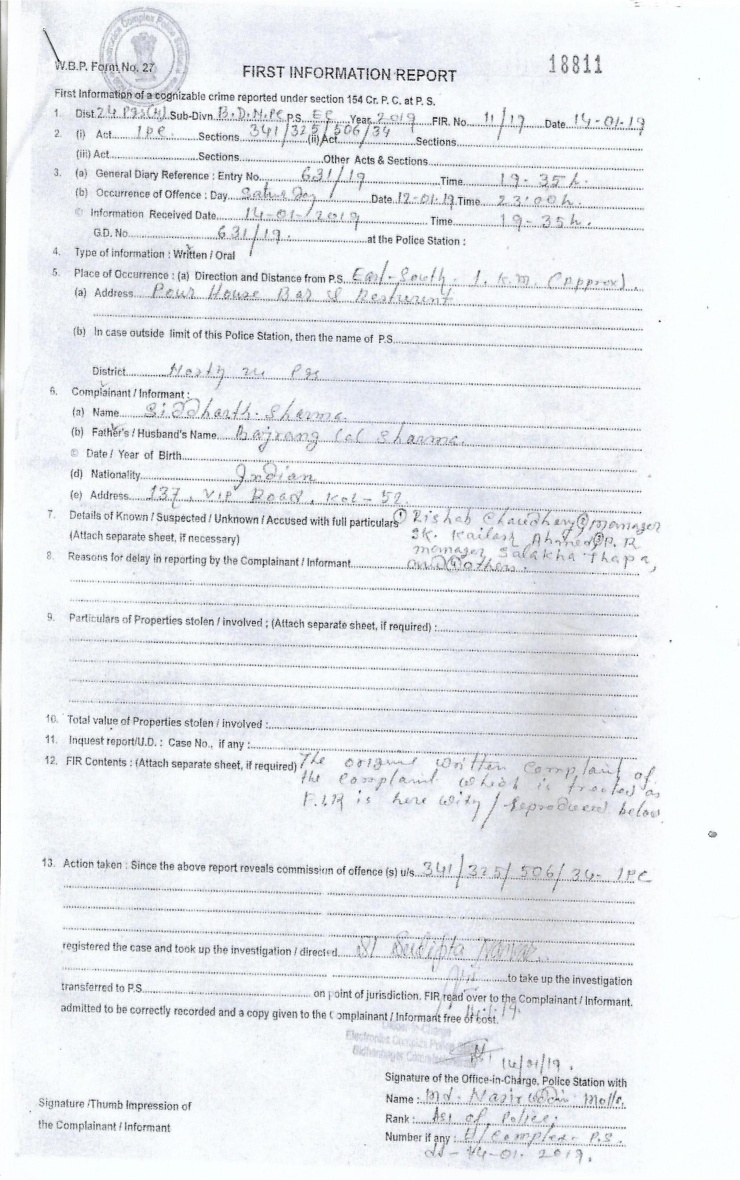 W.B.P. Form No. 27
18811
FIRST INFORMATION REPORT
First Information of a cognizable crime reported under section 154 Cr. P. C. at P. S.
1. Dist. 24 Pgs(N) Sub-Divn. B.D.N.P.C P.S. EC Year 2019 FIR. No. 11/19 Date 14-01-19
2. (i) Act IPC. Sections 341/325/506/34 (ii) Act Sections
(iii) Act Sections Other Acts & Sections
3. (a) General Diary Reference : Entry No. 631/19 Time 19-35 h.
(b) Occurrence of Offence : Day Saturday Date 12-01-19 Time 23:00 h.
© Information Received Date 14-01-2019 Time 19-35 h.
G.D. No. 631/19. at the Police Station :
4. Type of information : Written / Oral
5. Place of Occurrence : (a) Direction and Distance from P.S. East-South - 1. K.M. (Approx).
(a) Address Pour House Bar & Resturint
(b) In case outside limit of this Police Station, then the name of P.S.
District North 24 Pgs
6. Complainant / Informant :
(a) Name Siddharth Sharma
(b) Father's / Husband's Name Bajrang Lal Sharma.
© Date / Year of Birth
(d) Nationality Indian
(e) Address 137, VIP Road, Kol-52.
7. Details of Known / Suspected / Unknown / Accused with full particulars ① Rishab Chaudhary ② manager
(Attach separate sheet, if necessary) SK. Kailash Ahamed ③ P.R
manager Salakha Thapa,
8. Reasons for delay in reporting by the Complainant / Informant and others.
9. Particulars of Properties stolen / involved ; (Attach separate sheet, if required) :
10. Total value of Properties stolen / involved :
11. Inquest report/U.D. : Case No., if any :
12. FIR Contents : (Attach separate sheet, if required) The original written complaint of
the complaint which is treated as
F.I.R is here with / reproduced below
13. Action taken : Since the above report reveals commission of offence (s) u/s. 341/325/506/34 IPC
registered the case and took up the investigation / directed SI
to take up the investigation
transferred to P.S. on point of jurisdiction. FIR read over to the Complainant / Informant.
admitted to be correctly recorded and a copy given to the Complainant / Informant free of cost.
Electronics Complex Police
Bidhannagar
14/01/19.
Signature of the Office-in-Charge, Police Station with
Name : Md. Nasir Uddin Molla
Signature /Thumb Impression of
Rank : ASI of Police,
the Complainant / Informant
Number if any : E/Complex P.S.
14-01-2019.